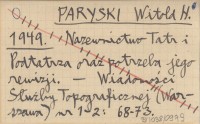 PARYSKI Witold H.
1949. Nazewnictwo Tatr i
Podtatrza oraz potrzeba jego
rewizji. — Wiadomości
Służby Topograficznej (War-
szawa) nr 1-2: 68-73.